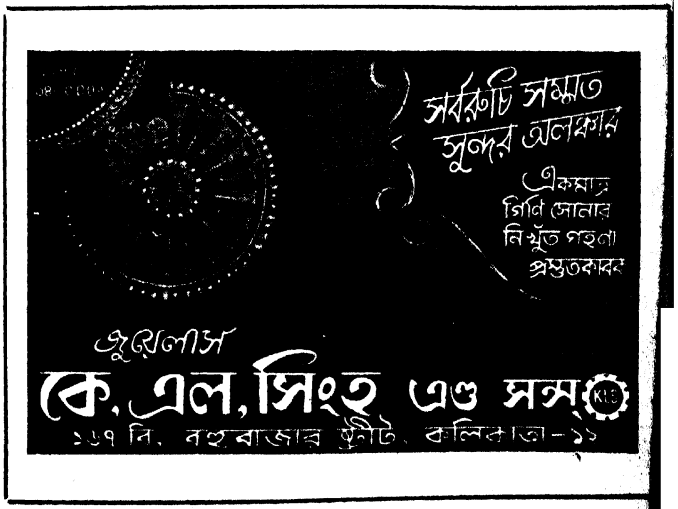 সর্বরুচি সম্মত
সুন্দর অলঙ্কার
একমাত্র
গিণি সোনার
নিখুঁত গহণা
প্রস্তুতকারক
জুয়েলার্স
কে. এল. সিংহ এণ্ড সন্স্ KLS
১৬৭ বি, বহুবাজার ষ্ট্রীট, কলিকাতা-১২